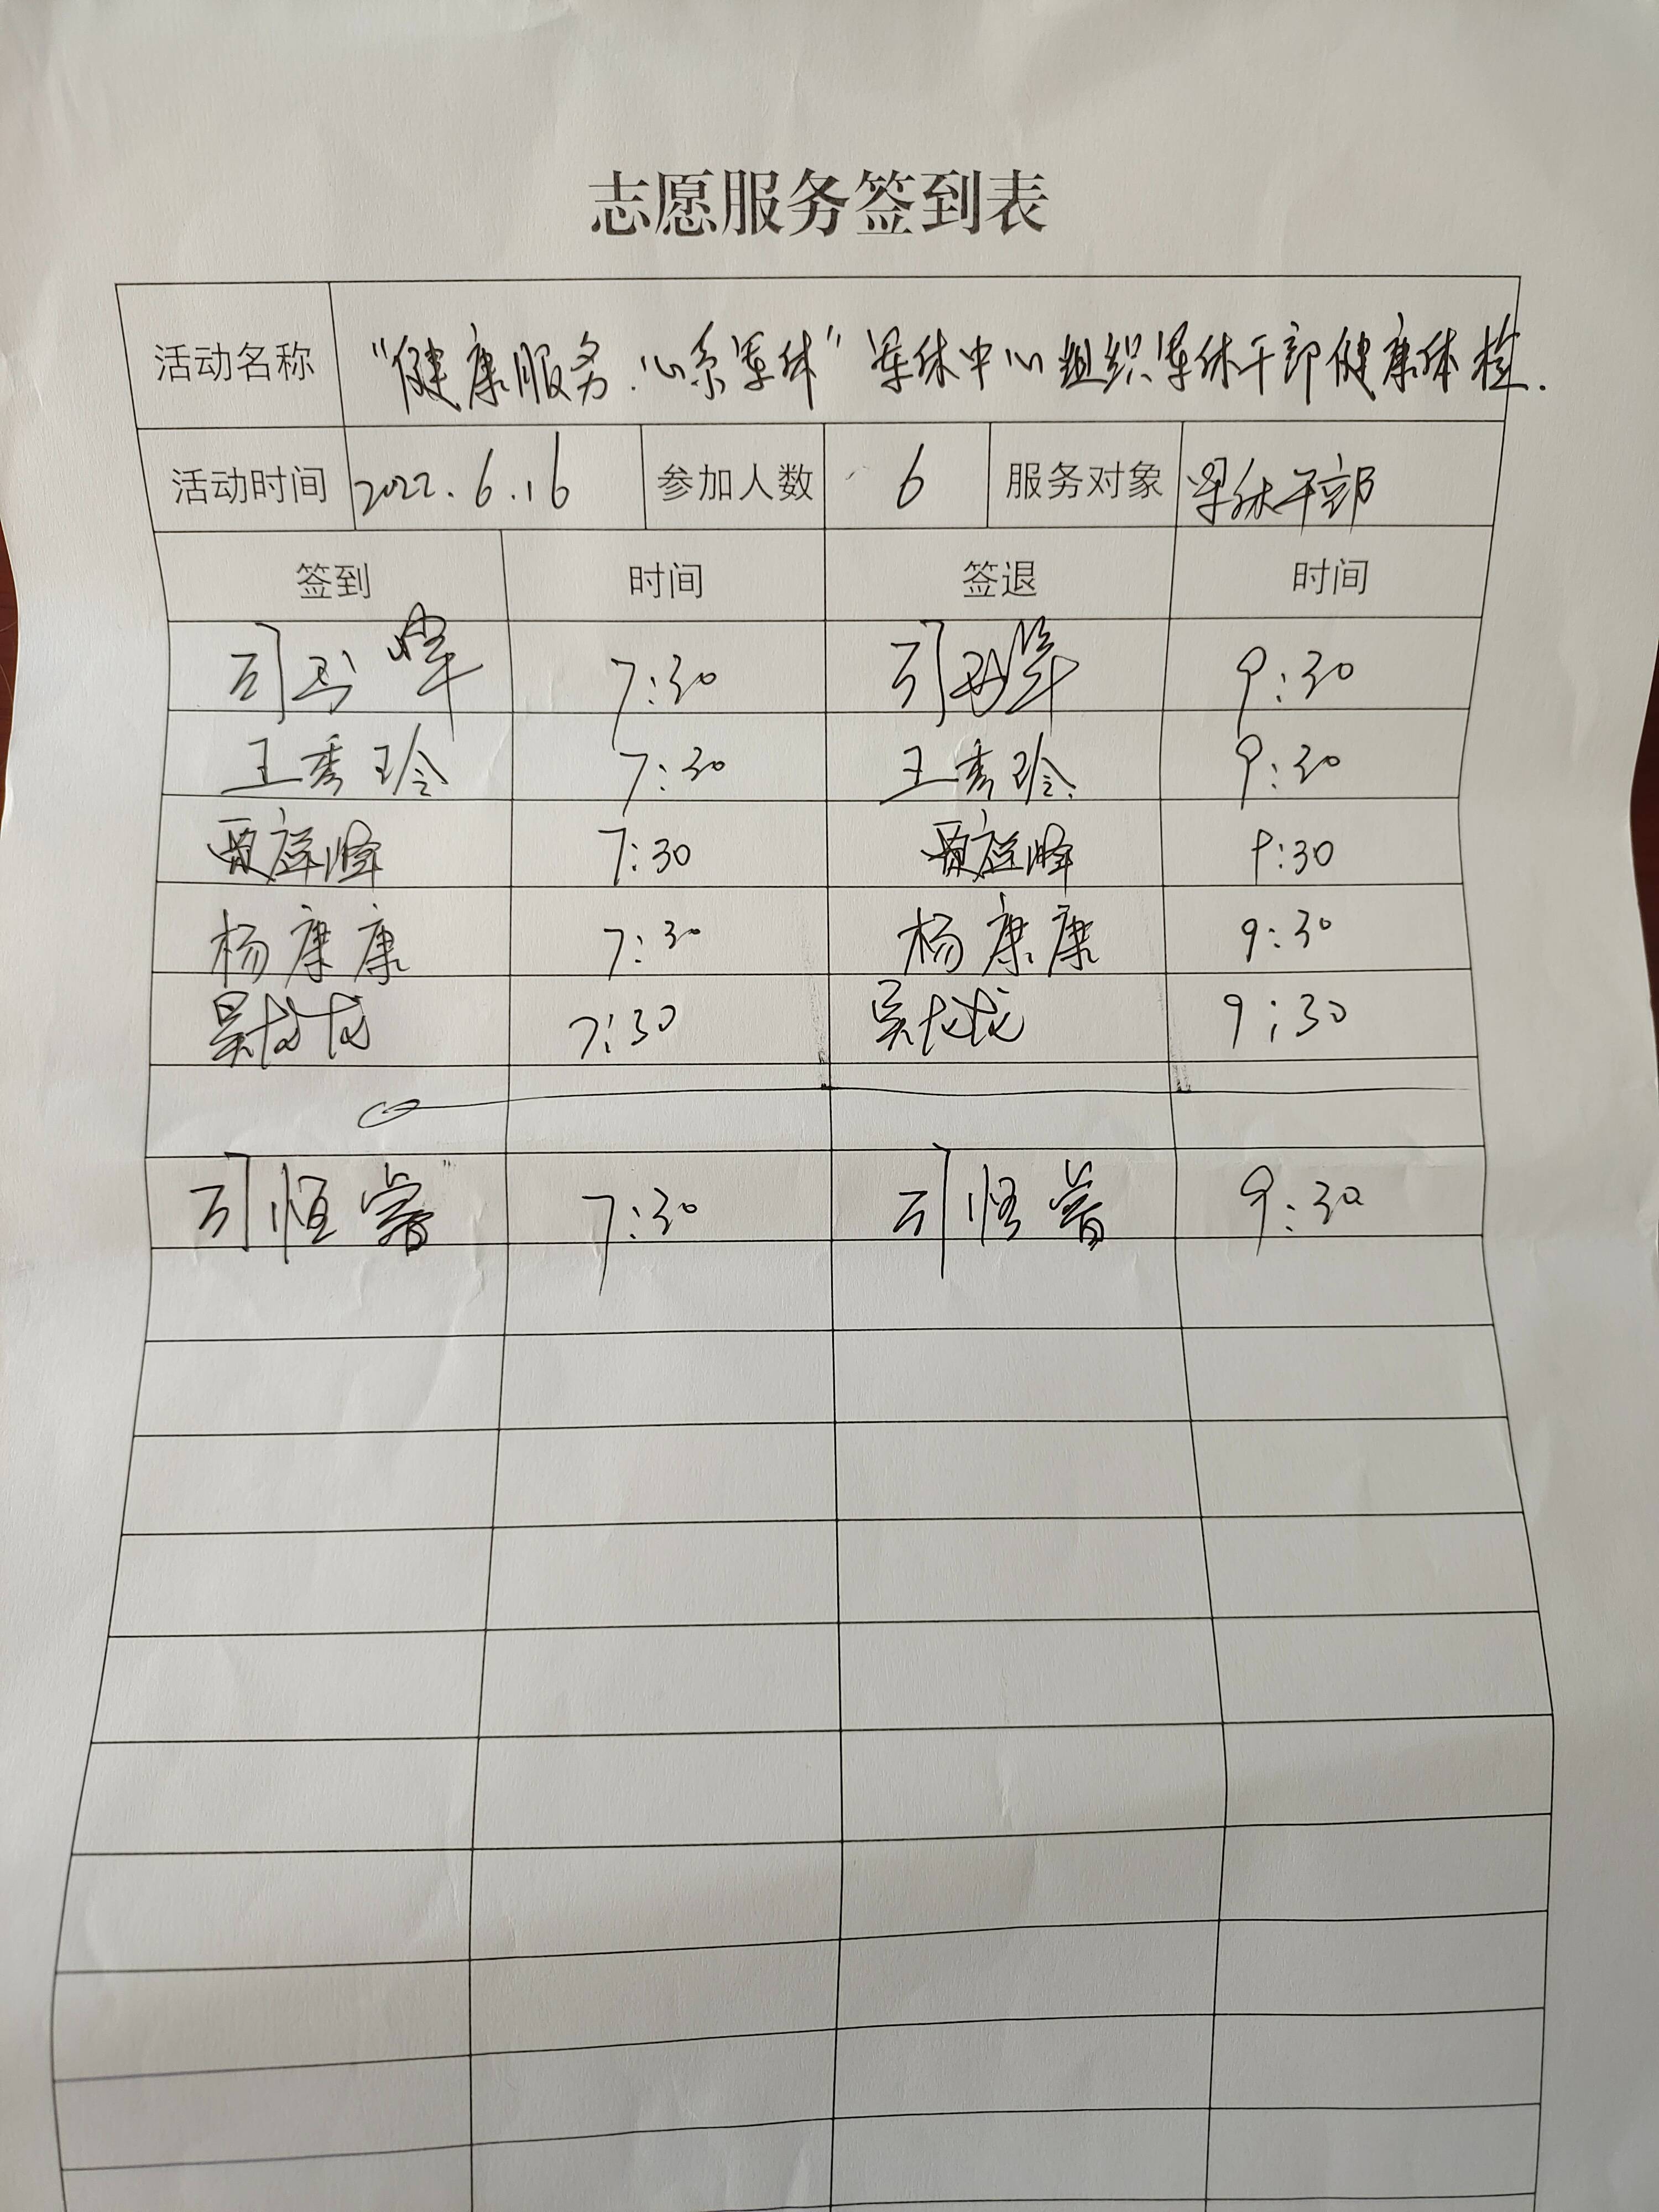 志愿服务签到表
活动名称 “健康服务.心系军休”军休中心组织军休干部健康体检.
活动时间 2022.6.16 参加人数 6 服务对象 军休干部
签到 时间 签退 时间
7:30 9:30
王秀玲 7:30 王秀玲 9:30
贾祥峰 7:30 贾祥峰 9:30
杨康康 7:30 杨康康 9:30
吴龙龙 7:30 吴龙龙 9:30
7:30 9:30